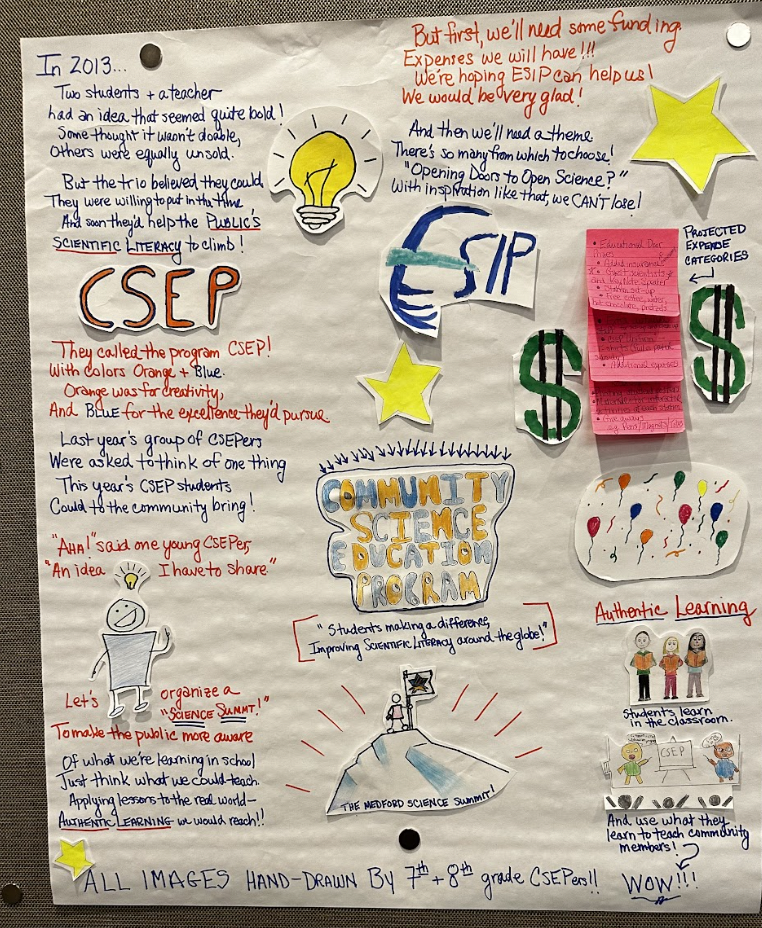 In 2013...
Two students + a teacher
had an idea that seemed quite bold!
Some thought it wasn't doable,
Others were equally unsold.
But the trio believed they could,
They were willing to put in the time
And soon they'd help the PUBLIC'S
SCIENTIFIC LITERACY to climb!
CSEP
They called the program CSEP!
With colors Orange + Blue.
Orange was for creativity,
And BLUE for the excellence they'd pursue.
Last year's group of CSEPers
Were asked to think of one thing
This year's CSEP students
Could to the community bring!
"AHA!" said one young CSEPer,
"An idea I have to share"
Let's organize a
"SCIENCE SUMMIT!"
To make the public more aware
Of what we're learning in school
Just think what we could teach.
Applying lessons to the real world-
AUTHENTIC LEARNING we would reach!!
But first, we'll need some funding.
Expenses we will have!!!
We're hoping ESIP can help us!
We would be very glad!
And then we'll need a theme
There's so many from which to choose!
"Opening Doors to Open Science?"
With inspiration like that, we CAN'T lose!
ESIP
PROJECTED
EXPENSE
CATEGORIES
• Educational Door
Prizes
and Keynote Speaker
COMMUNITY
SCIENCE
EDUCATION
PROGRAM
"Students making a difference,
Improving SCIENTIFIC LITERACY around the globe!"
THE MEDFORD SCIENCE SUMMIT!
Authentic Learning
Students learn
in the classroom.
CSEP
And use what they
learn to teach community
members!
WOW!!!
ALL IMAGES HAND-DRAWN BY 7th + 8th grade CSEPers!!